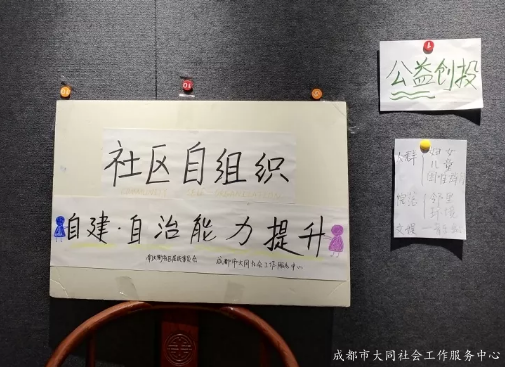 社区自组织
自建·自治能力提升
成都市大同社会工作服务中心
公益创投
人群
妇女
儿童
环境
成都市大同社会工作服务中心